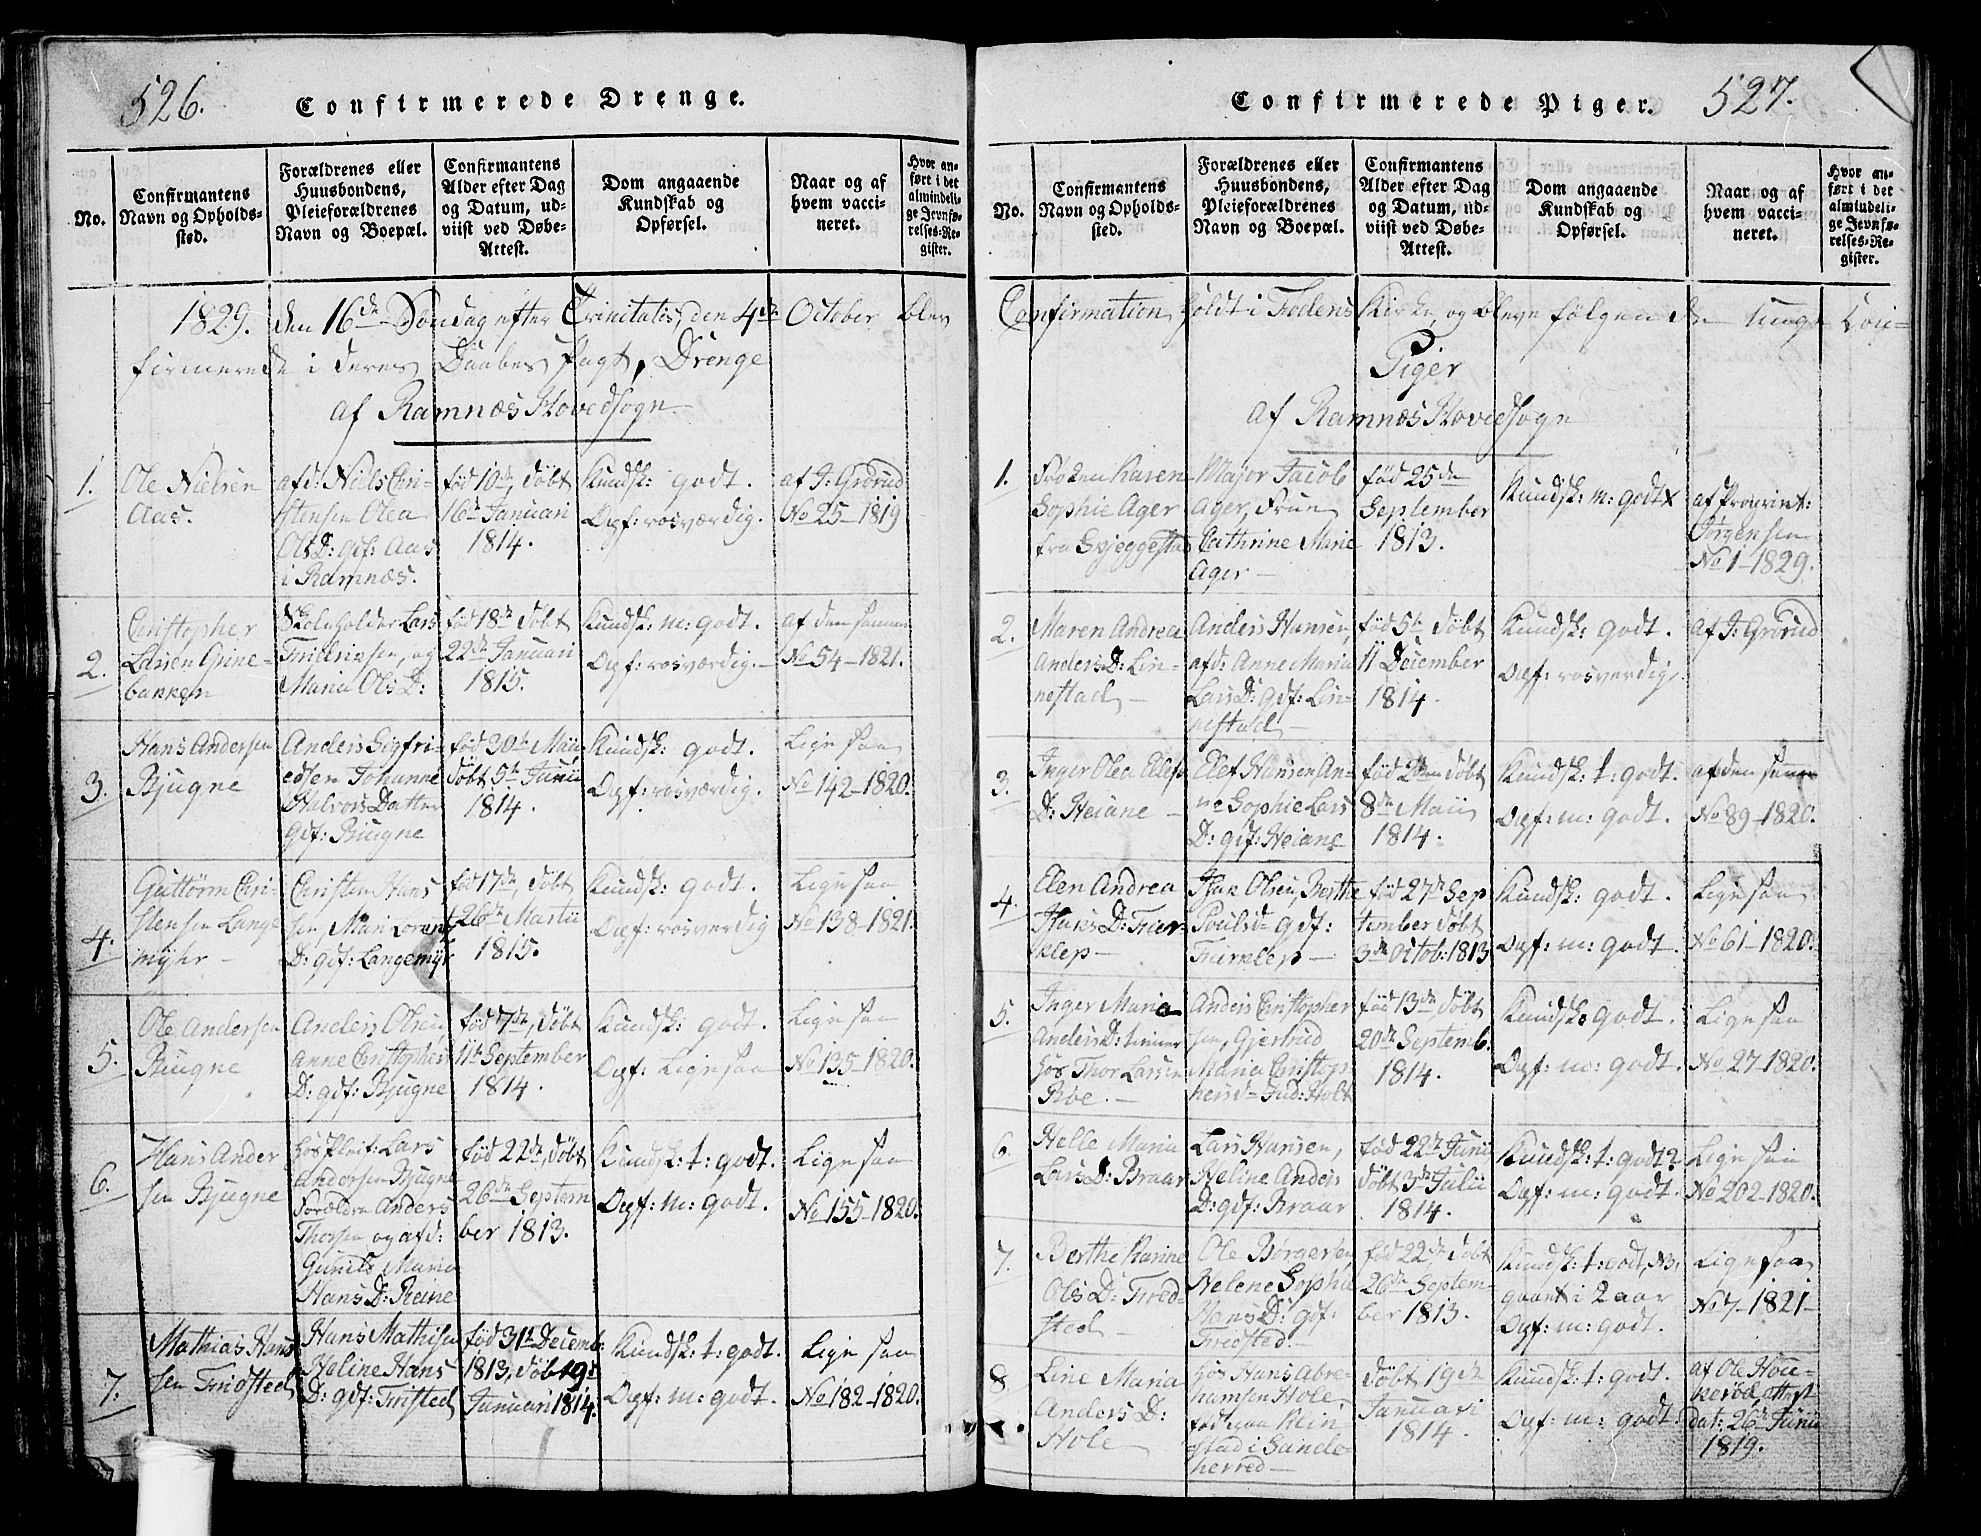 526.
Confirmerede Drenge.
No.
Confirmantens
Navn og Opholds-
sted.
Forældrenes eller
Huusbondens,
Pleieforældrenes
Navn og Boepæl.
Confirmantens
Alder efter Dag
og Datum, ud-
viist ved Døbe-
Attest.
Dom angaaende
Kundskab og
Opførsel.
Naar og af
hvem vacci-
neret.
Hvor an-
ført i det
almindeli-
ge Jevnfø-
relses-Re-
gister.
1829. den 16de Søndag efter Trinitatis, den 4de October blev
firmerede i deres Daabes Pagt, Drenge
af Ramnæs Hovedsogn
1.
Ole Nielsen
Aas.
afd: Niels Chri-
stensen Olea
Ols D: gdf: Aas
i Ramnæs.
fød 10de, døbt
16de Januari
1814.
Kundsk: godt.
Opf: rosværdig.
af J: Grorud
No 25-1819
2.
Christopher
Larsen Grine-
bakken
Skoleholder Lars
Fridrixsen, og
Maria Ols D:
fød 18de døbt
22de Januari
1815.
Kundsk: m: godt.
Opf: rosværdig.-
af den samme
No 54-1821.
3.
Hans Andersen
Bjugne
Anders Sigfri-
edsen Johanne
Halvors Datter
gdf: Biugne
fød 30te Maii
døbt 5te Junii
1814.
Kundsk: godt.
Opf: rosværdig.
Lige saa
No 142-1820.
4.
Guttorm Chri-
stensen Lange
myhr -
Christen Hans
sen, Mari Lorentz
D: gdf: Langemyhr
fød 17de, døbt
26de Martii
1815.
Kundsk: godt.
Opf: rosverdig
Lige saa
No 138-1821.
5.
Ole Andersen
Biugne
Anders Olsen
Anne Christophers
D: gdf: Bjugne
fød 7de, døbt
11te September
1814.
Kundsk: godt.
Opf: Lige saa
Lige saa
No 135-1820.
6.
Hans Ander
sen Bjugne
hos Pleif: Lars
Andersen Bjugne
Forældre Anders
Thorsen og afd:
Gunild Maria
Hans D: Reine
fød 22de, døbt
26de Septem
ber 1813.
Kundsk: t: godt.
Opf: m: godt.
Lige saa
No 155-1820.
7.
Mathias Hans
sen Fredsted
Hans Mathisen
Heline Hans
D: gdf: Fristed
fød 31te Decemb:
1813, døbt 19de
Januari 1814.
Kundsk: t: godt.
Opf: m: godt.
Lige saa
No 182-1820.
Confirmerede Piger.
527.
No.
Confirmantens
Navn og Opholds-
sted.
Forældrenes eller
Huusbondens,
Pleieforældrenes
Navn og Boepæl.
Confirmantens
Alder efter Dag
og Datum, ud-
viist ved Døbe-
Attest.
Dom angaaende
Kundskab og
Opførsel.
Naar og af
hvem vacci-
neret.
Hvor an-
ført i det
almindeli-
ge Jevnfø-
relses-Re-
gister.
Confirmation holdt i Fodens Kirke, og bleve følgende unge Con-
Piger
af Ramnæs Hovedsogn
1.
Frøken Karen
Sophie Ager
fra Skjeggestad
Major Jacob
Ager, Fruen
Cathrine Marie
Ager -
fød 25de
September
1813.
Kundsk: m: godt
af
Jørgensen
No 1-1829.
2.
Maren Andrea
Anders D: Lin-
nestad -
Anders Hansen,
afd: Anne Maria
Lars D: gdf: Lin-
nestad -
fød 5te døbt
11 December
1814.
Kundsk: godt.
Opf: rosverdig.
af J: Grorud
3.
Inger Olea Elefs
D: Heiane -
Elef Hansen An-
ne Sophie Lars
D: gdf: Heiane
fød 2den døbt
8de Maii
1814.
Kundsk: t: godt.
Opf: m: godt.
af den samme
No 89-1820.
4.
Elen Andrea
Isaks D: Fur-
klep -
Isak Olsen, Berthe
Pouls d- gdf:
Furklep -
fød 27de Sep
tember døbt
3de Octob: 1813
Kundsk: godt.
Opf: m: godt.
Lige saa
No 61-1820.
5.
Inger Maria
Anders D: tiener
hos Thor Larsen
Røe. -
Anders Christopher
sen, Gjertrud
Maria Christop
hersd- Hold
fød 13de døbt
20de Septemb.
1814.
Kundsk: godt.
Opf: m: godt.
Lige saa
No 27-1820.
6.
Helle Maria
Lars D: Braar
Lars Hansen,
Heline Anders
D: gdf: Braar
fød 22de Junii
døbt 3de Julii
1814.
Kundsk: t: godt
Opf: m: godt.
Lige saa
No 202-1820.
7.
Berthe Karine
Ols D: Fred-
sted -
Ole Børgersen
Helene Sophie
Hans D: gdf.
Fredsted.
fød 22de, døbt
26de Septem-
ber 1813.
Kundsk: t: godt, NB:
gaaet i 2 aar
Opf: m: godt.
Lige saa
No 7-1821-
8.
Line Maria
Anders D:
Hole
hos Hans Abra-
hamsen Hole,
stad i Sande-
herred -
Døbt 19de
Januari
1814.
Kundsk: t: godt.
Opf: m: godt.
af Ole
attest
dat: 26de Junii
1819.